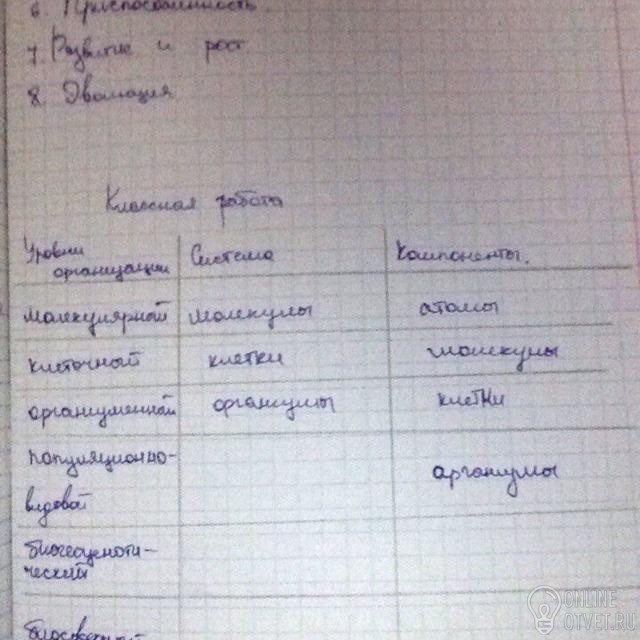 6. Приспособленность
7. Развитие и рост
8. Эволюция
Классная работа
Уровни организации | Система | Компоненты.
молекулярный | молекулы | атомы
клеточный | клетки | молекулы
организменный | организмы | клетки
популяционно-
видовой | | организмы
биогеоценоти-
ческий
биосферный
ONLINE
OTVET.RU